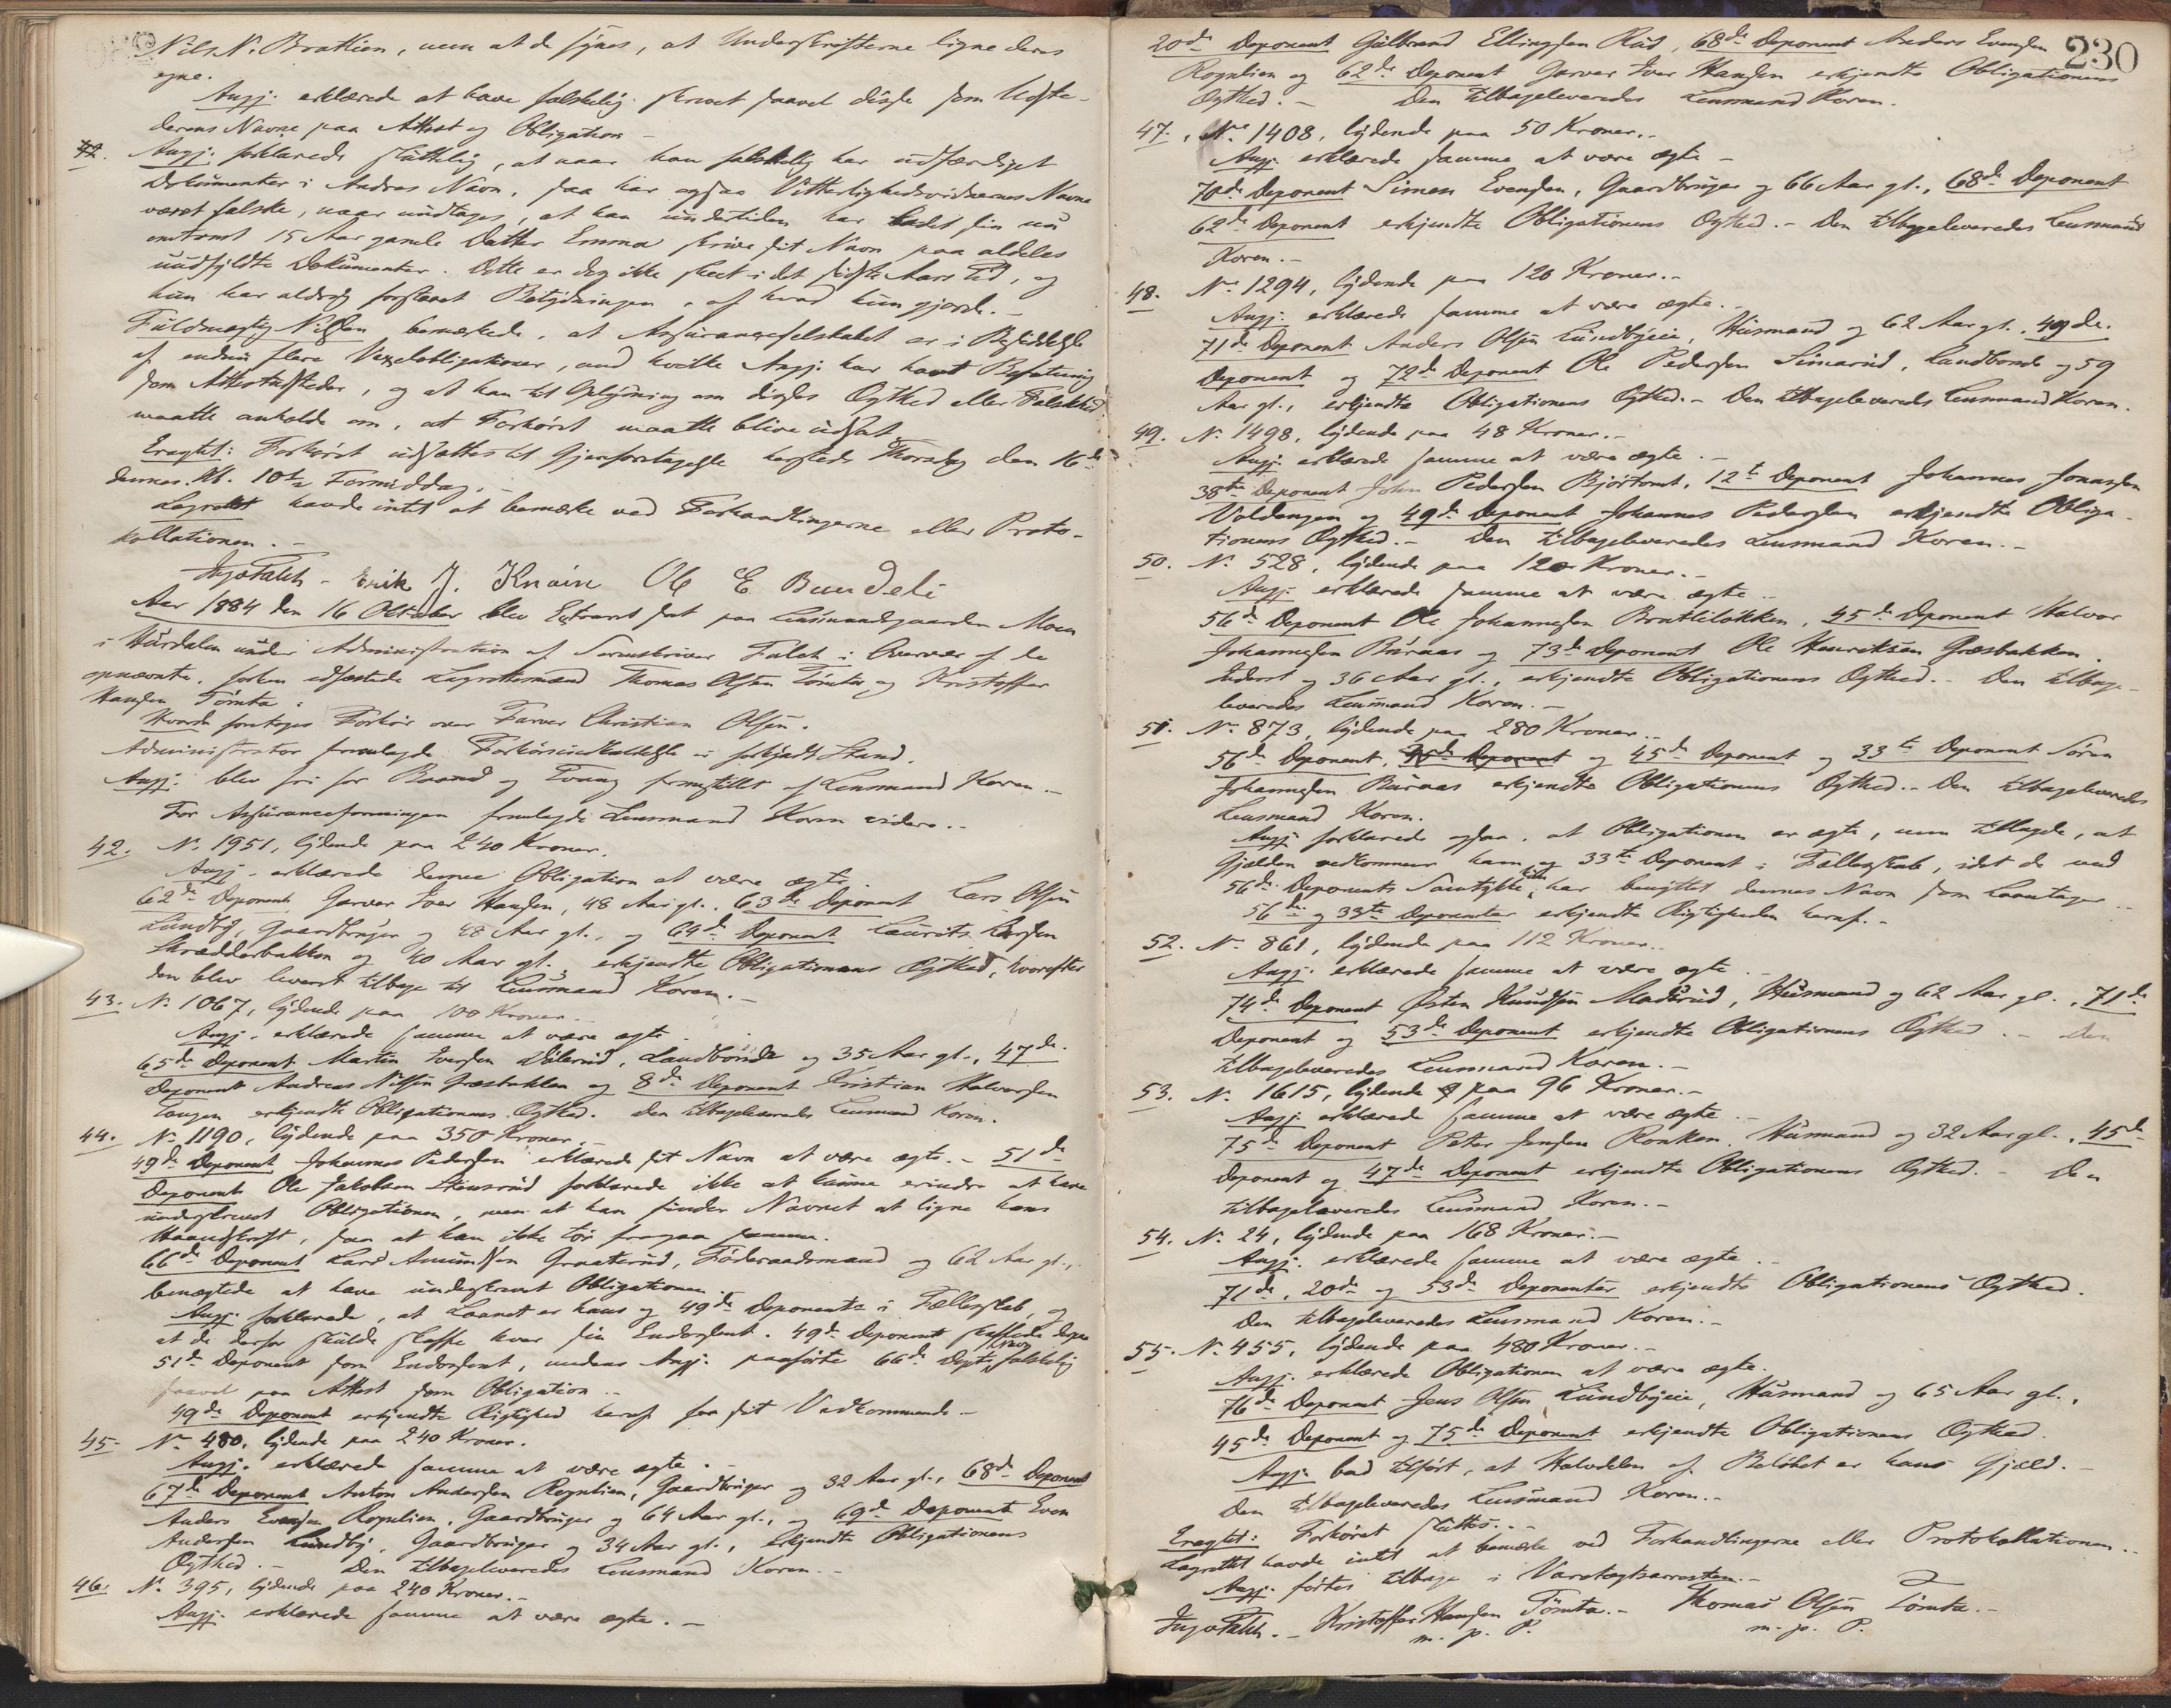 Nils N. Brattlien, men at de synes, at Underskrifterne ligne deres
egne.
Angj. erklærede at have falskelig skrevet saavel disse som Udste-
derens Navne paa Attest og Obligation –
42. Angj. forklarede sluttelig, at naar han falskelig har udfærdiget
Dokumenter i Andres Navn, saa har ogsaa Vitterlighedsvidnernes Navne
været falske, naar undtages, at han undertiden har ladet sin nu
omtrent 15 Aar gamle Datter Emma skrive sit Navn paa aldeles
uudfyldte Dokumenter. Dette er dog ikke skeet i det sidste Aars Tid, og
hun har aldrig forstaaet Betydningen af hvad hun gjorde. –
Fuldmægtig Nilsen bemærkede, at Assuranceselskabet er i Besiddelse
af endnu flere Vexelobligationer, med hvilke Angj. har havt Befatning
som Attestudsteder, og at han til Oplysning om disses Ægthed eller Falskhed
maatte anholde om, at Forhøret maatte blive udsat.
Eragtet: Forhøret udsattes til Gjenforetagelse hersteds Thorsdag den 16de
dennes Kl. 10½ Formiddag. –
Lagrettet havde intet at bemærke ved Forhandlingerne eller Proto-
kollationen. –
Ingv Falch – Erik J. Knain Ole E Bundeli
Aar 1884 den 16 Oktober blev Extraret sat paa Lensmandsgaarden Moen
i Hurdalen under Administration af Sorenskriver Falch i Overvær af de
opnævnte, forhen edfæstede Lagrettesmænd Thomas Olsen Tömta og Kristoffer
Hansen Tömta:
Hvorda foretoges Forhør over Farver Christian Olsen.
Administrator fremlagde Forhørsindkaldelse i forkyndt Stand.
Angj. blev fri for Baand og Tvang fremstillet af Lensmand Koren. –
For Assuranceforeningen fremlagde Lensmand Koren videre. –
42. No 1951, lydende paa 240 Kroner.
Angj. erklærede denne Obligation at være ægte.
62de Deponent Garver Iver Hansen, 48 Aar gl., 63de Deponent Lars Olsen
Lundby, Gaardbruger og 48 Aar gl., og 64de Deponent Laurits Larsen
Skrædderbakken og 40 Aar gl., erkjendte Obligationens Ægthed, hvorefter
den blev leveret tilbage til Lensmand Koren. –
43. No 1067, lydende paa 100 Kroner. –
Angj. erklærede samme at være ægte.
65de Deponent Martin Iversen Dölerud, Landbonde og 35 Aar gl., 47de
Deponent Andreas Nilsen Græsbakken og 8de Deponent Kristian Halvorsen
Tangen erkjendte Obligationens Ægthed. Den tilbageleveredes Lensmand Koren.
44. No 1190, lydende paa 350 Kroner. –
49de Deponent Johannes Pedersen erklærede sit Navn at være ægte. – 51de
Deponent Ole Jakobsen Stensrud forklarede ikke at kunne erindre at have
underskrevet Obligationen, men at han finder Navnet at ligne hans
Haandskrift, saa at han ikke tör fragaa samme.
66de Deponent Lars Amundsen Graaterud, Föderaadsmand og 62 Aar gl.,
benægtede at have underskrevet Obligationen.
Angj. forklarede, at Laanet er hans og 49de Deponents i Fællesskab, og
at de derfor skulde skaffe hver sin Endossent. 49de Deponent skaffede
51de Deponent som Endossent, medens Angj. paaførte 66de Depts Navn falskelig
saavel paa Attest som Obligation. –
49de Deponent erkjendte Rigtighed heraf for sit Vedkommende –
45. No 480, lydende paa 240 Kroner.
Angj. erklærede samme at være ægte. –
67de Deponent Anton Andersen Rognlien, Gaardbruger og 32 Aar gl., 68de Deponent
Anders Evensen Rognlien, Gaardbruger og 64 Aar gl., og 69de Deponent Even
Andersen Lundby, Gaardbruger og 34 Aar gl., erkjendte Obligationens
Ægthed. – Den tilbageleveredes Lensmand Koren. –
46. No 395, lydende paa 240 Kroner. –
Angj. erklærede samme at være ægte. –
230
20de Deponent Gulbrand Ellingsen Rud, 68de Deponent Anders Evensen
Rognlien og 62de Deponent Garver Iver Hansen erkjendte Obligationens
Ægthed. – Den tilbageleveredes Lensmand Koren.
47. No 1408, lydende paa 50 Kroner. –
Angj. erklærede samme at være ægte –
70de Deponent Simen Evensen, Gaardbruger og 66 Aar gl., 68de Deponent
62de Deponent erkjendte Obligationens Ægthed. – Den tilbageleveredes Lensmand
Koren. –
48. No 1294, lydende paa 120 Kroner. –
Angj. erklærede samme at være ægte. –
71de Deponent Anders Olsen Lundbyeie, Husmand og 62 Aar gl., 49de
Deponent og 72de Deponent Ole Pedersen Simarud, Landbonde og 59
Aar gl., erkjendte Obligationens Ægthed. – Den tilbageleveredes Lensmand Koren.
49. No 1498, lydende paa 48 Kroner. –
Angj. erklærede samme at være ægte. –
38te Deponent John Pedersen Björtomt, 12te Deponent Johannes Jonassen
Voldengen og 49de Deponent Johannes Pedersen erkjendte Obliga-
tionens Ægthed. – Den tilbageleveredes Lensmand Koren. –
50. No 528, lydende paa 120 Kroner. –
Angj. erklærede samme at være ægte. –
56de Deponent Ole Johannesen Brattlilökken, 45de Deponent Halvor
Johannesen Buraas og 73de Deponent Ole Henriksen Græsbakken,
Inderst og 36 Aar gl., erkjendte Obligationens Ægthed. – Den tilbage-
leveredes Lensmand Koren. –
51. No 873, lydende paa 280 Kroner. –
56de Deponent, og 45de Deponent og 33te Deponent Sören
Johannesen Buraas erkjendte Obligationens Ægthed. – Den tilbageleveredes
Lensmand Koren.
Angj. forklarede ogsaa, at Obligationen er ægte, men tillagde, at
Gjælden vedkommer ham og 33te Deponent i Fællesskab, idet de med
56de Deponents Samtykke kun har benyttet dennes Navn som Laantager. –
56de og 33te Deponenter erkjendte Rigtigheden heraf. –
52. No 861, lydende paa 112 Kroner. –
Angj. erklærede samme at være ægte. –
74de Deponent Östen Knudsen Maderud, Husmand og 62 Aar gl., 71de
Deponent og 53de Deponent erkjendte Obligationens Ægthed. – Den
tilbageleveredes Lensmand Koren. –
53. No 1615, lydende paa 96 Kroner. –
Angj. erklærede samme at være ægte. –
75de Deponent Peter Jensen Ronken, Husmand og 32 Aar gl., 45de
Deponent og 47de Deponent erkjendte Obligationens Ægthed. – Den
tilbageleveredes Lensmand Koren. –
54. No 24, lydende paa 168 Kroner. –
Angj. erklærede samme at være ægte. –
71de, 20de og 53de Deponenter erkjendte Obligationens Ægthed.
Den tilbageleveredes Lensmand Koren. –
55. No 455, lydende paa 480 Kroner. –
Angj. erklærede Obligationen at være ægte.
76de Deponent Jens Olsen Lundbyeie, Husmand og 65 Aar gl.,
45de Deponent og 75de Deponent erkjendte Obligationens Ægthed.
Angj. bad tilført, at Halvdelen af Beløbet er hans Gjæld. –
Den tilbageleveredes Lensmand Koren. –
Eragtet: Forhøret sluttes. –
Lagrettet havde intet at bemærke ved Forhandlingerne eller Protokollationen. –
Angj. førtes tilbage i Varetægtsarresten. –
Ingv Falch. – Kristoffer Hansen Tömta. – Thomas Olsen Tömta. –
m. p. P. m. p. P.